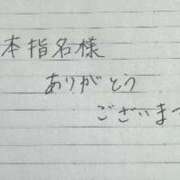 本指名様
ありがとう
ございま